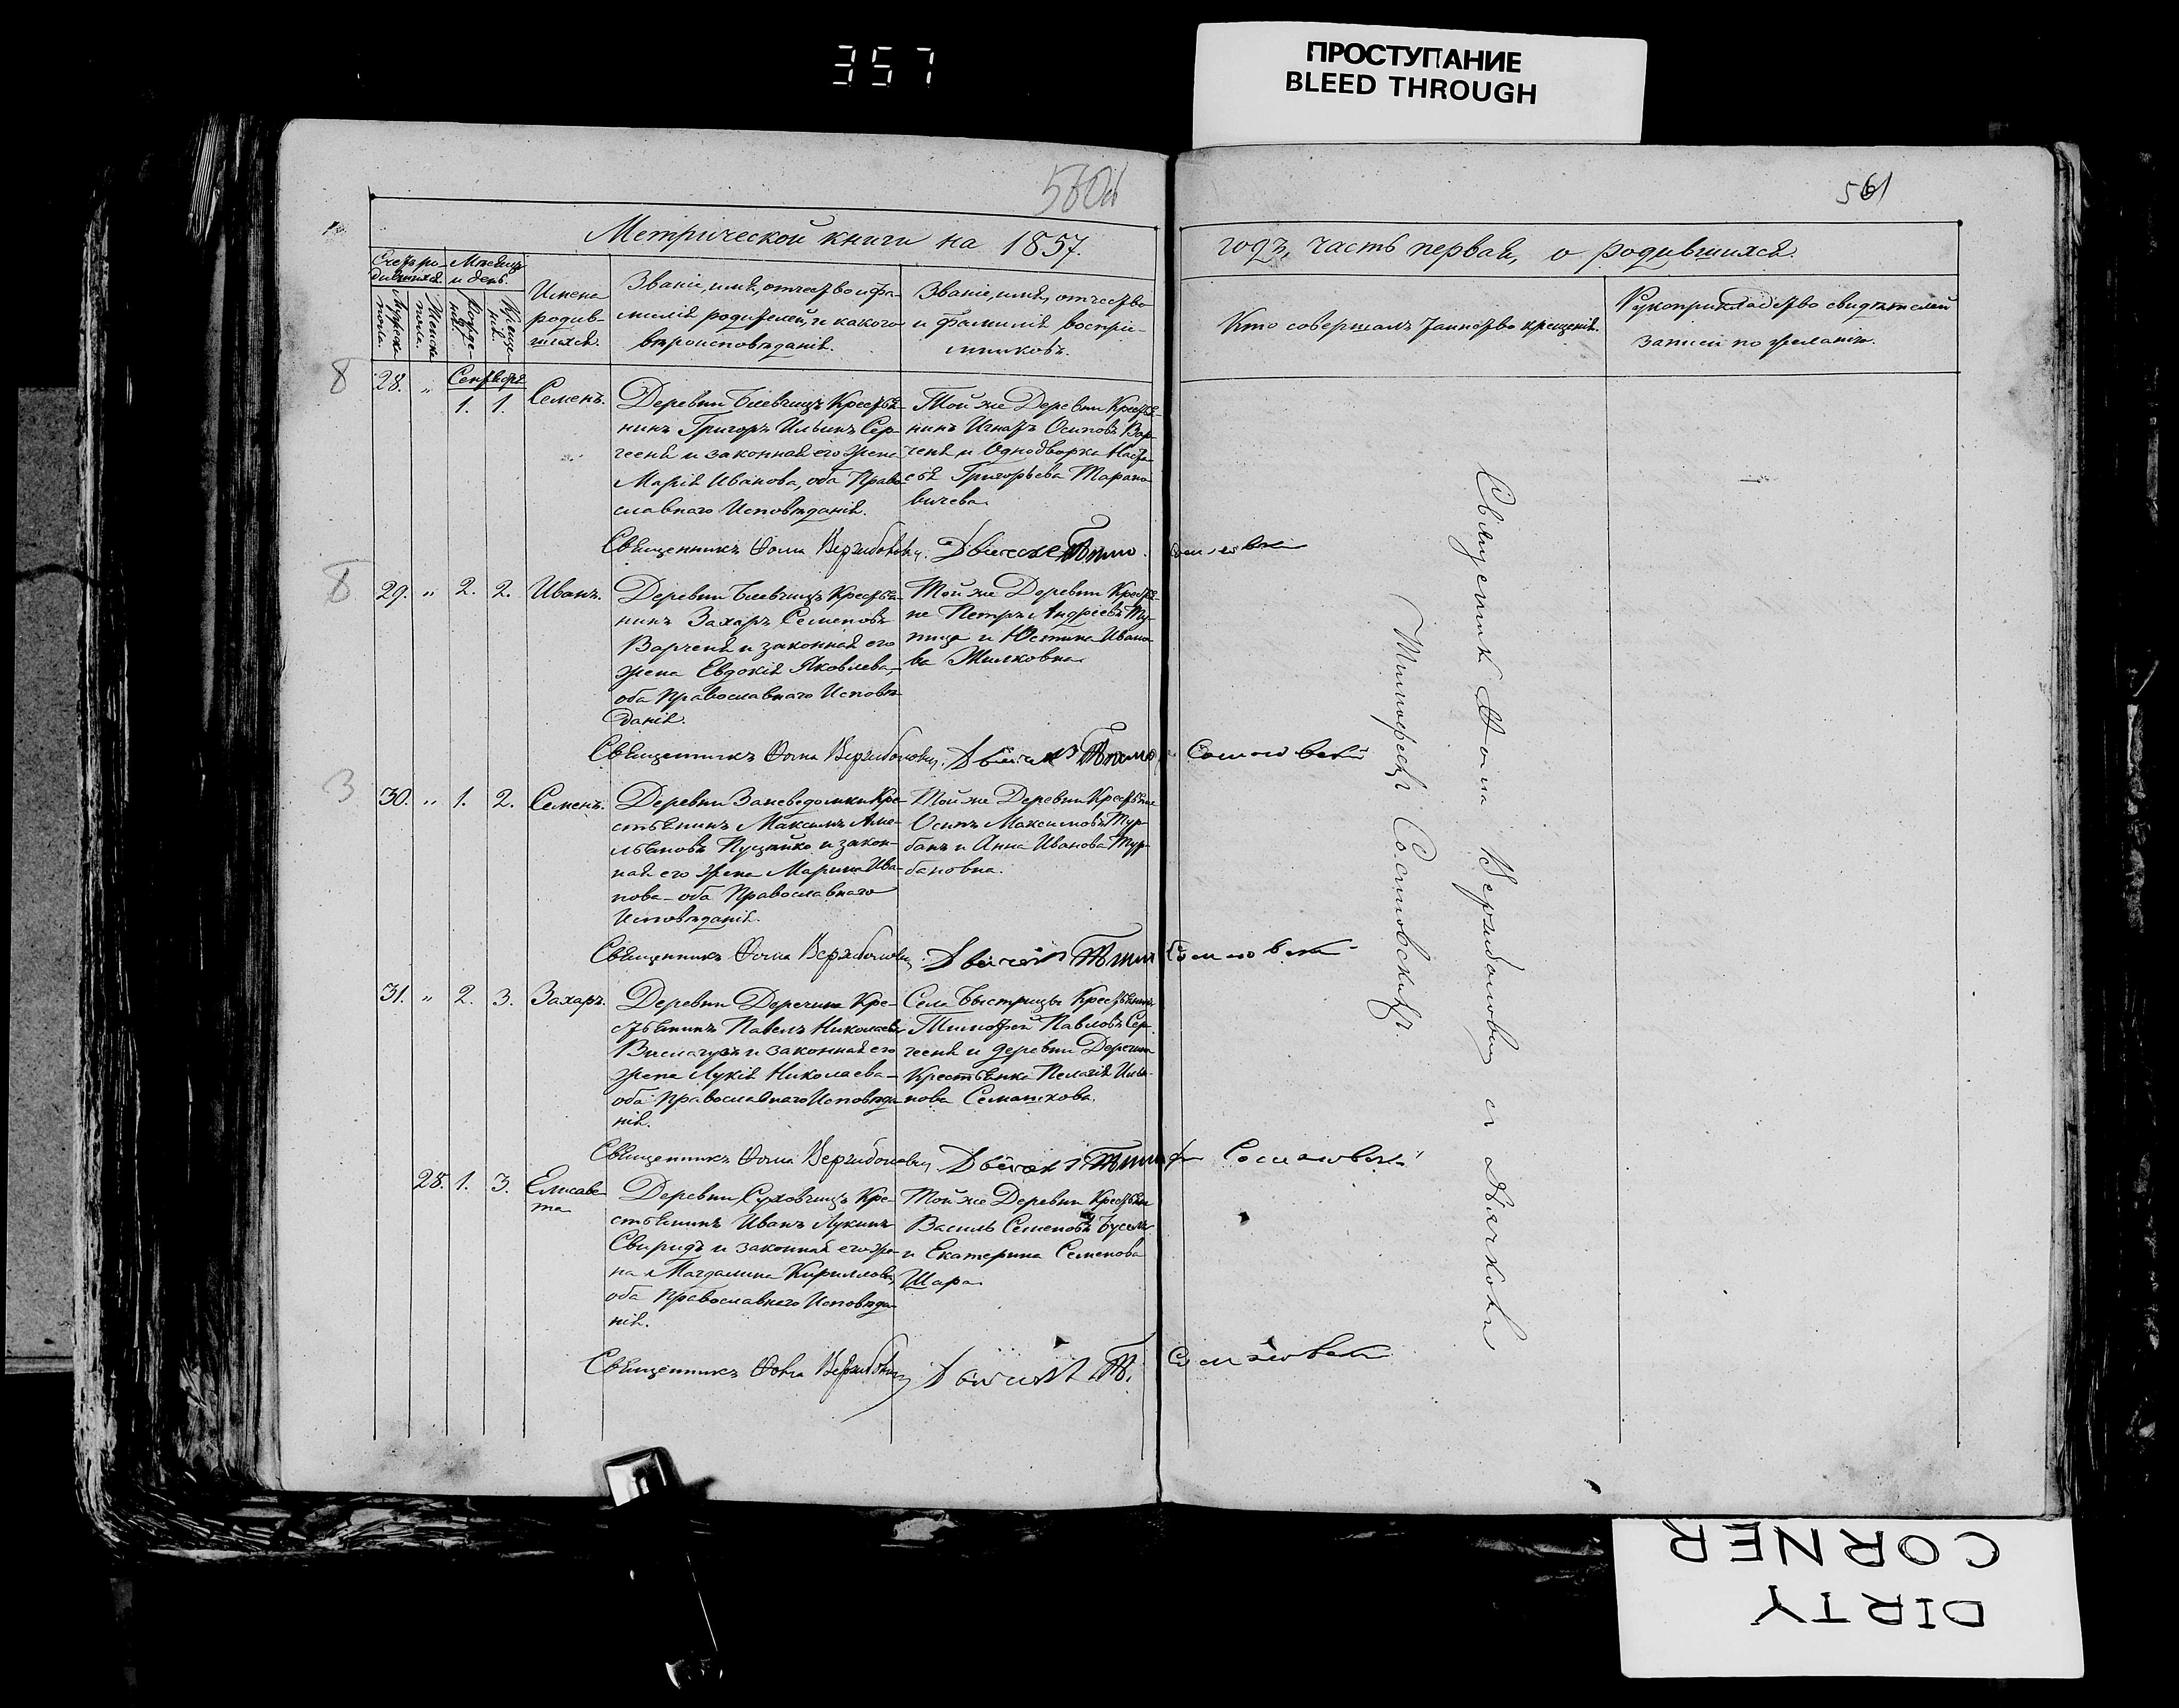 357
ПРОСТУПАНИЕ
BLEED THROUGH
561
Метрической книги на 1857.
годъ, часть первая, о родившихся.
Счетъ ро-
дившихся.
Мужеска
пола.
Женска
пола.
Месяцъ
и день.
Рожде-
нія.
Креще-
нія.
Имена
родив-
шихся.
Званіе, имя, отчество и фа-
милія родителей, и какого
вѣроисповѣданія.
Званіе, имя, отчество
и фамилія воспріе-
мниковъ.
Кто совершалъ таинство крещенія.
Рукоприкладство свидѣтелей
записи по желанію.
8
28. „
Сентября
1. 1.
Семенъ.
Деревни Крестья-
нинъ Григоръ Ильинъ Сер-
геня и законная его жена
Марія Иванова, оба Право-
славнаго Исповѣданія.
Той же Деревни Крестья-
нинъ Игнатъ Осиповъ Вар-
ченя и Однодворка Наста-
сья Григорьева Тарано-
вичева.
Священникъ Ѳома Вержболовичъ.
8
29. „ 2. 2. Иванъ.
Деревни Крестья-
нинъ Захаръ Семеновъ
Варченя и законная его
жена Евдокія Яковлева,
оба Православнаго Исповѣ-
данія.
Той же Деревни Крестья-
не Петръ Андреевъ
и Юстина Ивано-
ва Жилковна.
Священникъ Ѳома Вержболовичъ.
3
30. „ 1. 2. Семенъ.
Деревни Заневедомки Кре-
стьянинъ Максимъ Аме-
льяновъ и закон-
ная его жена Марина Ива-
нова - оба Православнаго
Исповѣданія.
Той же Деревни Крестьяне
Осипъ Максимовъ Тур-
банъ и Анна Иванова Тур-
бановна.
Священникъ Ѳома Вержболовичъ
31. „ 2. 3. Захаръ.
Деревни Деречина Кре-
стьянинъ Павелъ Николаевъ
и законная его
жена Лукія Николаева -
оба Православнаго Исповѣда-
нія.
Села Быстрицы Крестьянинъ
Тимофей Павловъ Сер-
геня и деревни Деречина
Крестьянка Пелагія
Семашкова.
Священникъ Ѳома Вержболовичъ
28. 1. 3. Елисаве-
та
Деревни Суховчицъ Кре-
стьянинъ Иванъ Лукинъ
Свиридъ и законная его же-
на Магдалина Кириллова,
оба Православнаго Исповѣда-
нія.
Той же Деревни Крестьяне
Василь Семеновъ Бусель
и Екатерина Семенова
Шара.
Священникъ Ѳома Вержболовичъ
Священникъ Ѳома Вержболовичъ съ Дьячкомъ
Тимофеемъ Сосновскимъ.
DIRTY
CORNER